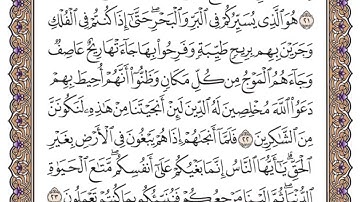 ٢١ هُوَ ٱلَّذِى يُسَيِّرُكُمْ فِى ٱلْبَرِّ وَٱلْبَحْرِ حَتَّىٰٓ إِذَا كُنتُمْ فِى ٱلْفُلْكِ
وَجَرَيْنَ بِهِم بِرِيحٍ طَيِّبَةٍ وَفَرِحُوا۟ بِهَا جَآءَتْهَا رِيحٌ عَاصِفٌ
وَجَآءَهُمُ ٱلْمَوْجُ مِن كُلِّ مَكَانٍ وَظَنُّوٓا۟ أَنَّهُمْ أُحِيطَ بِهِمْ
دَعَوُا۟ ٱللَّهَ مُخْلِصِينَ لَهُ ٱلدِّينَ لَئِنْ أَنجَيْتَنَا مِنْ هَٰذِهِۦ لَنَكُونَنَّ
مِنَ ٱلشَّٰكِرِينَ ٢٢ فَلَمَّآ أَنجَىٰهُمْ إِذَا هُمْ يَبْغُونَ فِى ٱلْأَرْضِ بِغَيْرِ
ٱلْحَقِّ يَٰٓأَيُّهَا ٱلنَّاسُ إِنَّمَا بَغْيُكُمْ عَلَىٰٓ أَنفُسِكُم مَّتَٰعَ ٱلْحَيَوٰةِ
ٱلدُّنْيَا ثُمَّ إِلَيْنَا مَرْجِعُكُمْ فَنُنَبِّئُكُم بِمَا كُنتُمْ تَعْمَلُونَ ٢٣